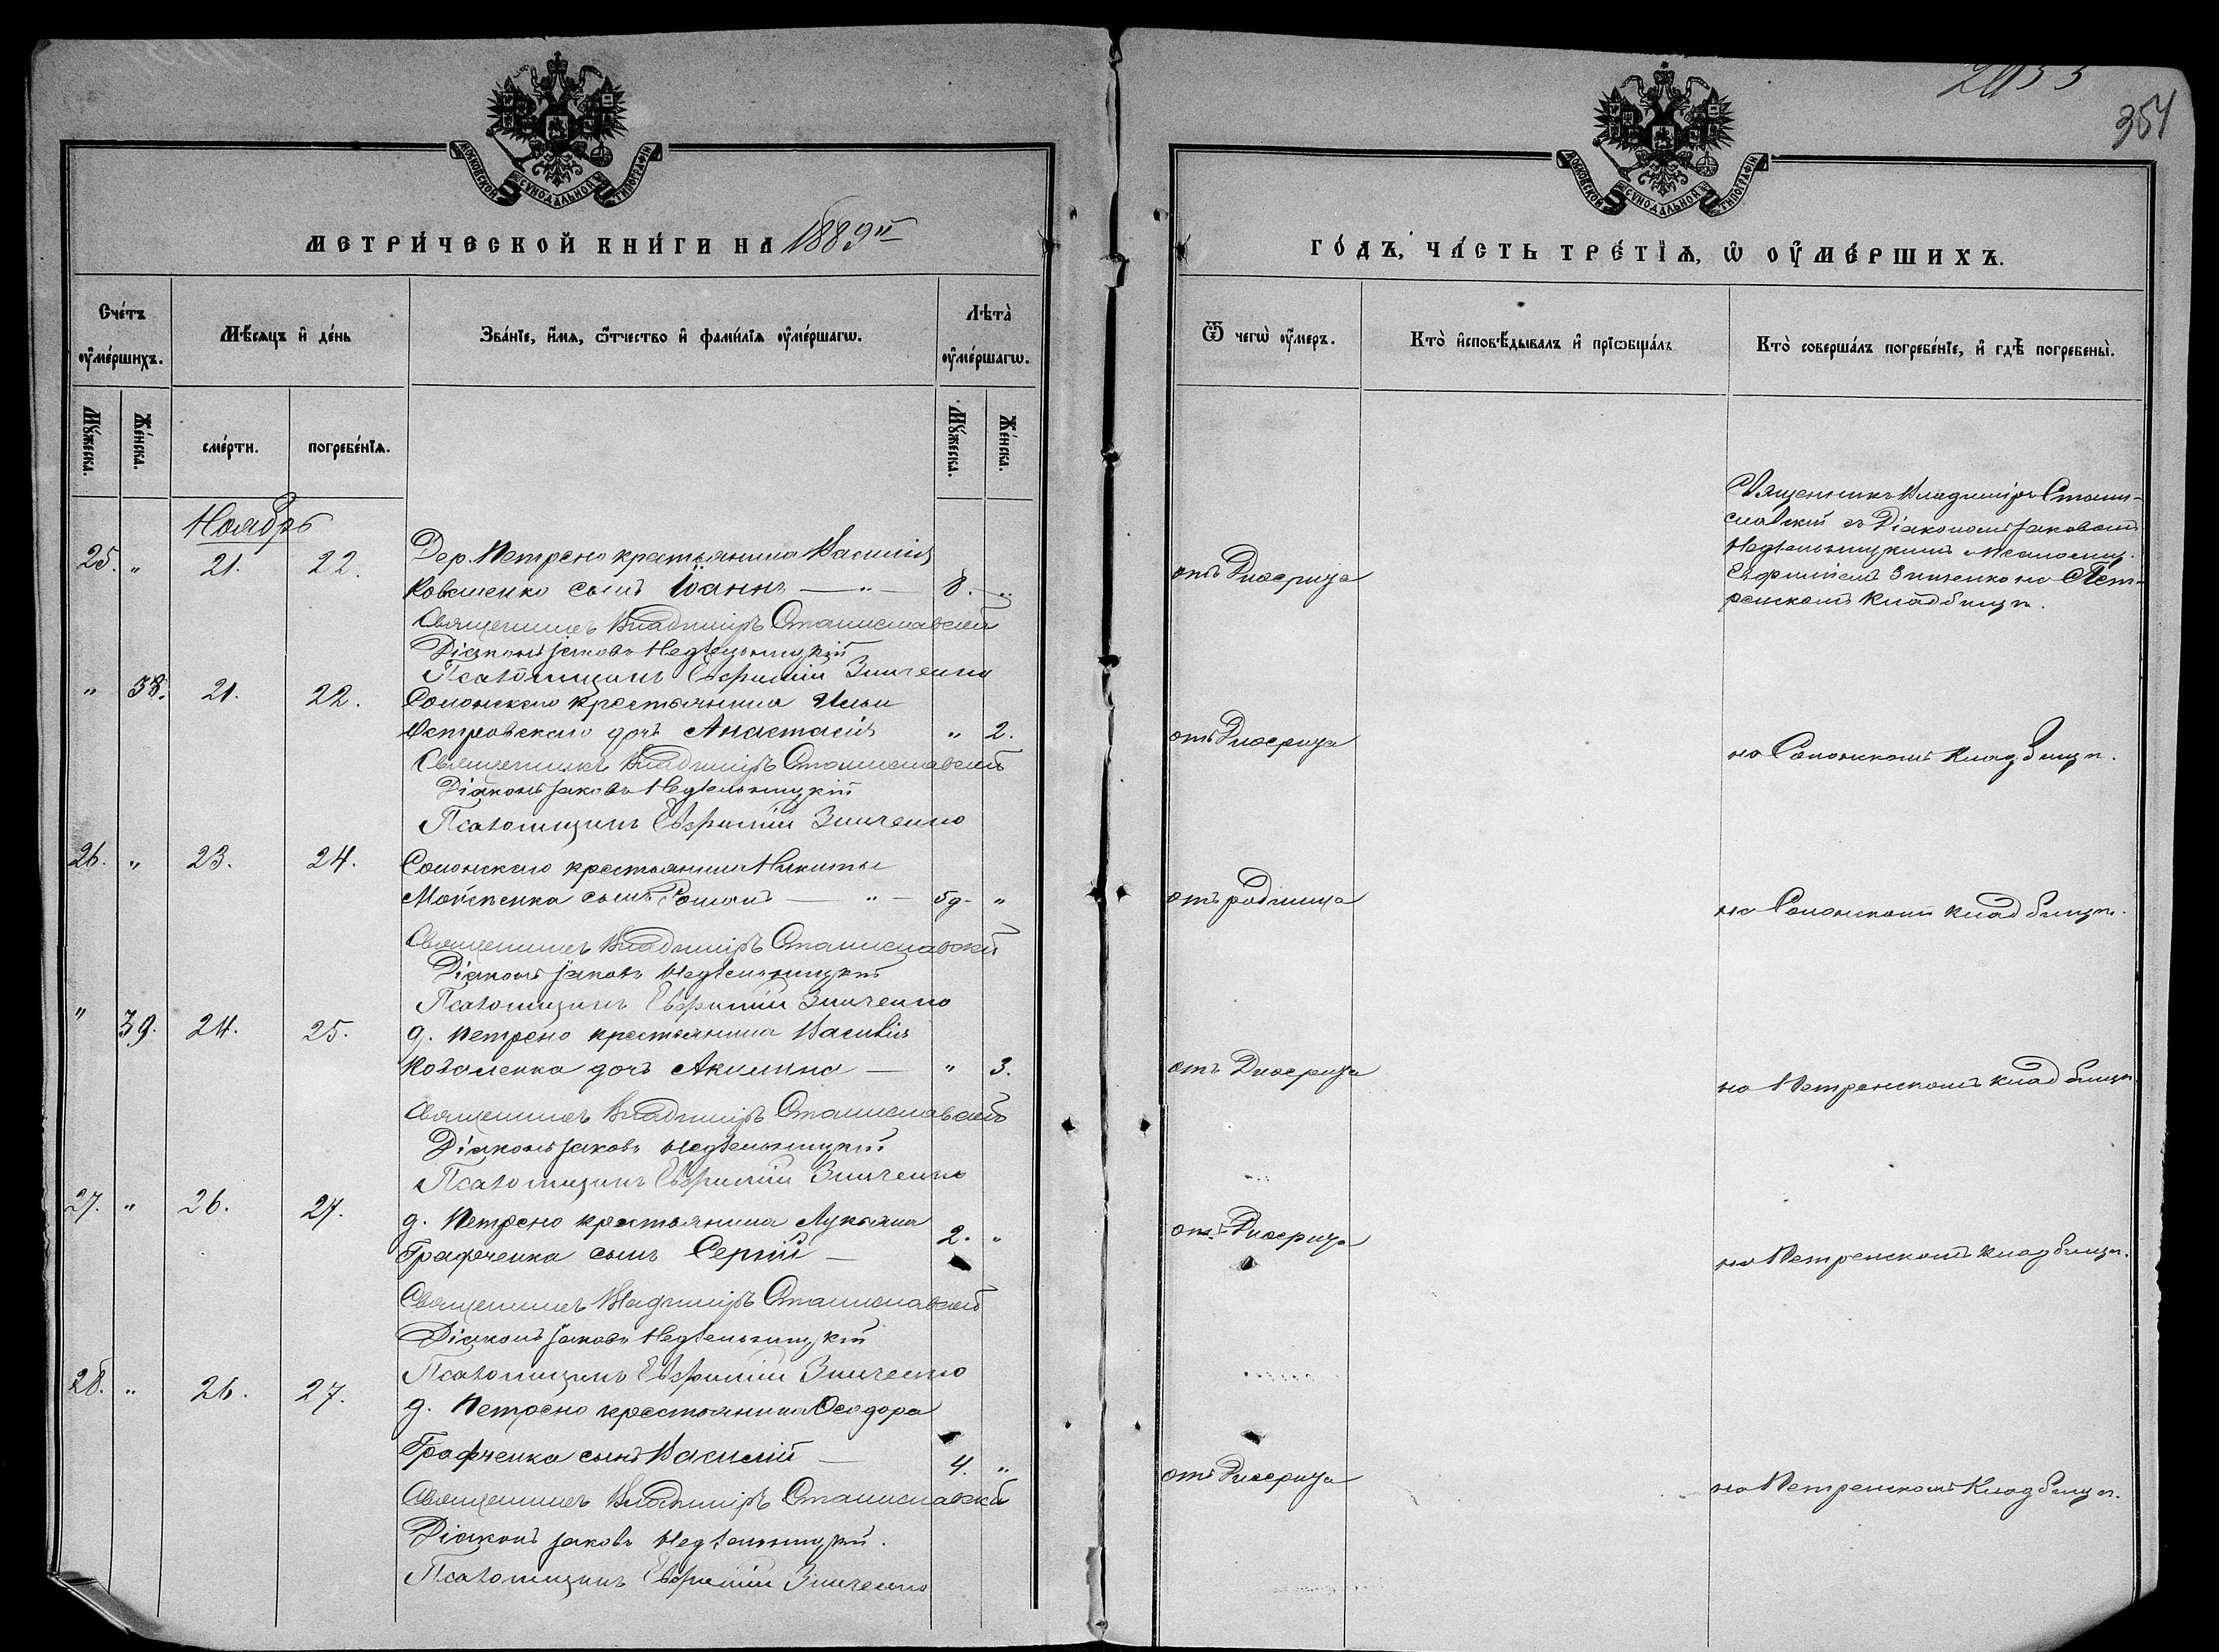 2033
354
МОСКОВСКОЙ СУНОДАЛЬНОЙ ТИПОГРАФІИ
МОСКОВСКОЙ СУНОДАЛЬНОЙ ТИПОГРАФІИ
МЕТРИ́ЧЕСКОЙ КНИ́ГИ НА 1889й
ГО́ДЪ, ЧА́СТЬ ТРЕ́ТЇѦ, Ѡ ОУ҆МЕ́РШИХЪ.
Сче́тъ оу҆ме́ршихъ.
Мѣ́сѧцъ и҆ де́нь
Зва́нїе, и҆́мѧ, ѻ҆́тчество и҆ фами́лїѧ оу҆ме́ршагѡ.
Лѣта̀ оу҆ме́ршагѡ.
Ѿ чегѡ̀ оу҆́меръ.
Кто̀ и҆сповѣ́дывалъ и҆ прїѡбща́лъ
Кто̀ соверша́лъ погребе́нїе, и҆ гдѣ̀ погребены̀.
Мꙋ́жеска.
Же́нска.
сме́рти.
погребе́нїѧ.
Мꙋ́жеска.
Же́нска.
Ноябрь
25. " 21. 22. Дер. Петрено крестьянина Василія
Коваленко сынъ Іоаннъ — " — 8. "
отъ Диѳерита
Священникъ Владиміръ Стани-
славскій съ Діакономъ Іаковомъ
Недѣльницкимъ и Псаломщ.
Евфиміемъ Зинченко на Пет-
ренскомъ кладбищѣ.
Священникъ Владиміръ Станиславскій
Діаконъ Іаковъ Недѣльницкій
Псаломщикъ Евфимій Зинченко
" 38. 21. 22. Солонского крестьянина Ильи
Островскаго дочь Анастасія " 2.
отъ Диѳерита
на Солонскомъ кладбищѣ.
Священникъ Владиміръ Станиславскій
Діаконъ Іаковъ Недѣльницкій
Псаломщикъ Евфимій Зинченко
26. " 23. 24. Солонского крестьянина Никиты
сынъ Романъ — " — "
отъ родимца
на Солонскомъ кладбищѣ.
Священникъ Владиміръ Станиславскій
Діаконъ Іаковъ Недѣльницкій
Псаломщикъ Евфимій Зинченко
" 39. 24. 25. д. Петрено крестьянина Василія
Коваленка дочь Акилина — " 3.
отъ Диѳерита
на Петренскомъ кладбищѣ
Священникъ Владиміръ Станиславскій
Діаконъ Іаковъ Недѣльницкій
Псаломщикъ Евфимій Зинченко
27. " 26. 27. д. Петрено крестьянина Лукьяна
Графченка сынъ Сергій — 2. "
отъ Диѳерита
на Петренскомъ кладбищѣ.
Священникъ Владиміръ Станиславскій
Діаконъ Іаковъ Недѣльницкій
Псаломщикъ Евфимій Зинченко
28. " 26. 27. д. Петрено крестьянина Ѳеодора
Графченка сынъ Василій — 4. "
отъ Диѳерита
на Петренскомъ кладбищѣ.
Священникъ Владиміръ Станиславскій
Діаконъ Іаковъ Недѣльницкій.
Псаломщикъ Евфимій Зинченко